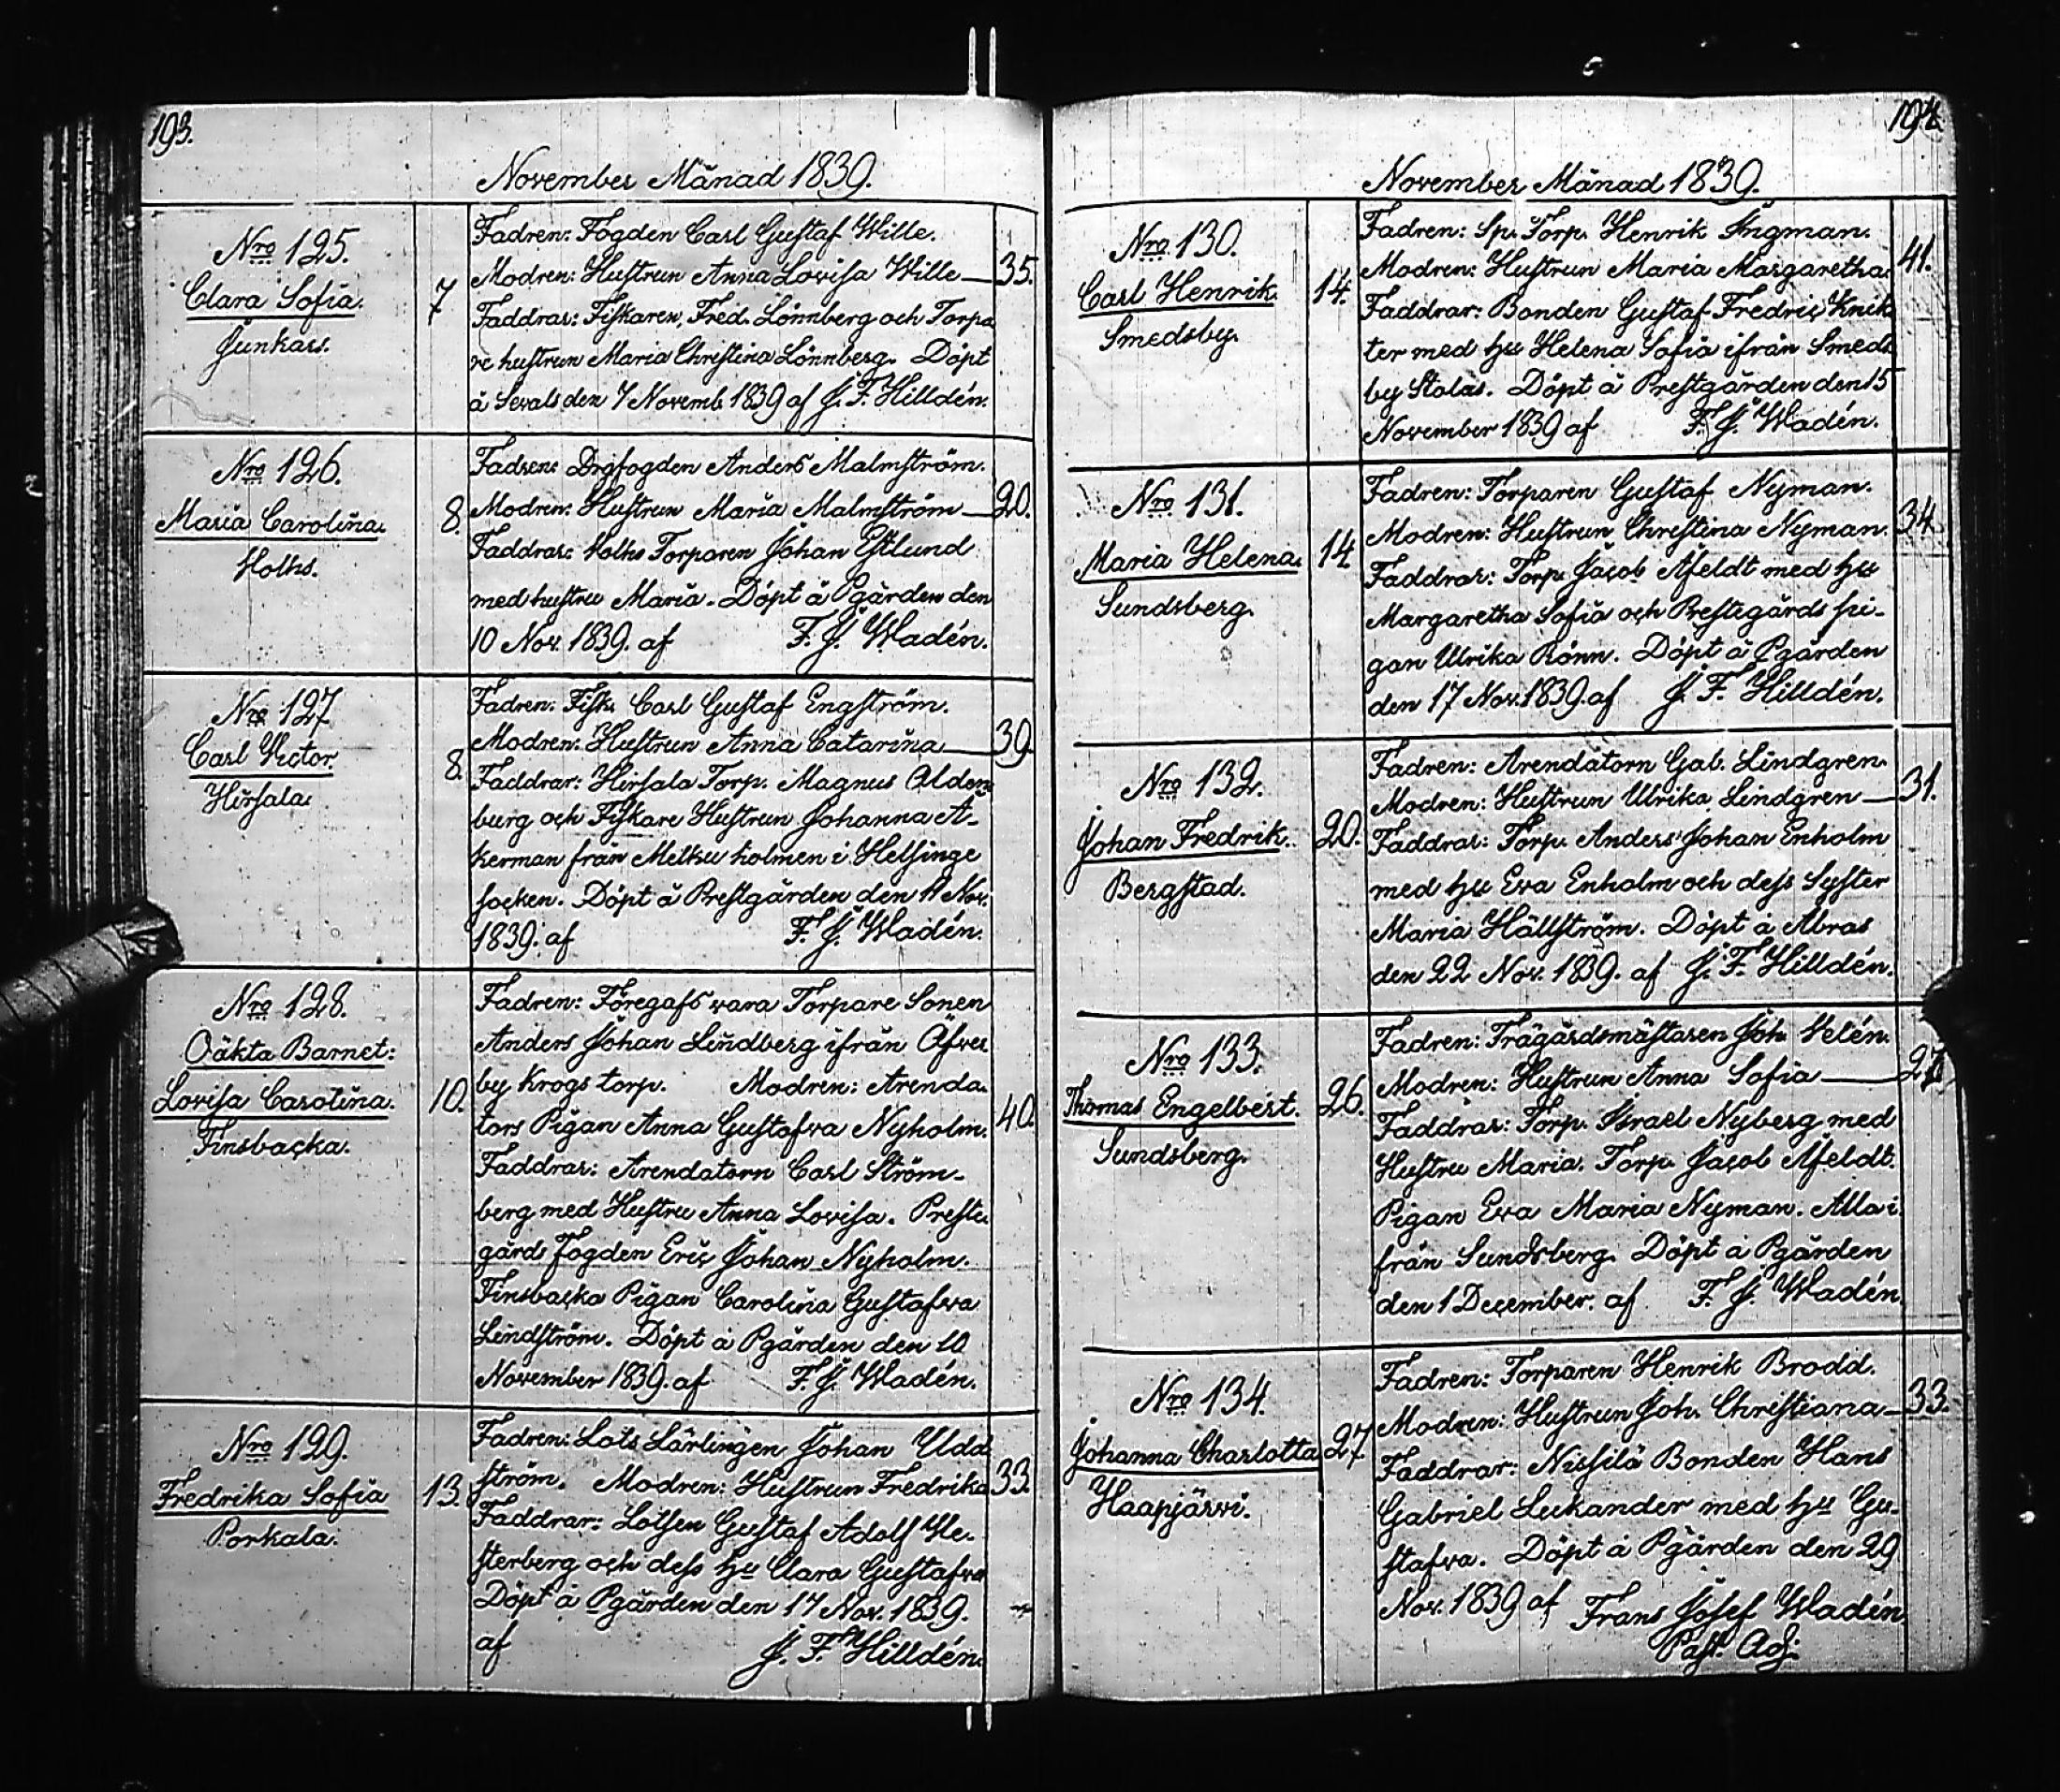 193.
November Månad 1839.
Nro 125.
Clara Sofia.
Junkars.
7
Fadren: Fogden Carl Gustaf Wille.
Modren: Hustrun Anna Lovisa Wille — 35.
Faddrar: Fiskaren, Fred. Lönnberg och Torpa
re hustrun Maria Christina Lönnberg. Döpt
å Sevals den 7 Novemb. 1839 af J. F. Hilldén.
Nro 126.
Maria Carolina.
Holks.
8.
Fadren: Drgfogden Anders Malmström.
Modren: Hustrun Maria Malmström — 20.
Faddrar: Holks Torparen Johan Estlund
med hustru Maria. Döpt å Pgården den
10 Nov. 1839. af F. J. Wladén.
Nro 127
Carl Victor.
Hirsala.
8.
Fadren: Fisk. Carl Gustaf Engström.
Modren: Hustrun Anna Catarina — 39.
Faddrar: Hirsala Torp. Magnus Olden
burg och Fiskare Hustrun Johanna Å-
kerman från Melku holmen i Helsinge
socken. Döpt å Prestgården den 11 Nov.
1839. af F. J. Wladén.
Nro 128.
Oäkta Barnet:
Lovisa Carolina.
Finsbacka.
10.
Fadren: Föregafs vara Torpare Sonen
Anders Johan Lindberg ifrån Öfver
by Krogs torp. Modren: Arenda-
tors Pigan Anna Gustafva Nyholm. 40.
Faddrar: Arendatorn Carl Ström-
berg med Hustru Anna Lovisa. Preste
gårds Fogden Eric Johan Nyholm.
Finsbacka Pigan Carolina Gustafva
Lindström. Döpt å Pgården den 10
November 1839. af F. J. Wladén.
Nro 129.
Fredrika Sofia
Porkala.
13.
Fadren: Lots Lärlingen Johan Udd
ström. Modren: Hustrun Fredrika 33.
Faddrar: Lotsen Gustaf Adolf We-
sterberg och dess Hu Clara Gustafva
Döpt å Pgården den 17 Nov. 1839.
af J. F. Hilldén.
194.
November Månad 1839.
Nro 130.
Carl Henrik.
Smedsby.
14.
Fadren: Sp. Torp. Henrik Ingman.
Modren: Hustrun Maria Margaretha. 41.
Faddrar: Bonden Gustaf Fredric Knik
ter med Hu Helena Sofia ifrån Smeds
by Stolas. Döpt å Prestgården den 15
November 1839 af F. J. Wladén.
Nro 131.
Maria Helena.
Sundsberg.
14
Fadren: Torparen Gustaf Nyman.
Modren: Hustrun Christina Nyman. 34.
Faddrar: Torp. Jacob Åfeldt med Hu
Margaretha Sofia och Prestegårds pi-
gan Ulrika Rönn. Döpt å Pgården
den 17 Nov. 1839. af J. F. Hilldén.
Nro 132.
Johan Fredrik.
Bergstad.
20.
Fadren: Arendatorn Gab. Lindgren.
Modren: Hustrun Ulrika Lindgren — 31.
Faddrar: Torp. Anders Johan Enholm
med Hu Eva Enholm och dess Syster
Maria Hällström. Döpt å Åbras
den 22 Nov. 1839. af J. F. Hilldén.
Nro 133.
Thomas Engelbert.
Sundsberg.
26.
Fadren: Trägårdsmästaren Joh. Velén.
Modren: Hustrun Anna Sofia — 27
Faddrar: Torp. Israel Nyberg med
Hustru Maria. Torp. Jacob Åfeldt.
Pigan Eva Maria Nyman. Alla i
från Sundsberg. Döpt å Pgården
den 1 December. af F. J. Wladén.
Nro 134.
Johanna Charlotta
Haapjärvi.
27
Fadren: Torparen Henrik Brodd.
Modren: Hustrun Joh. Christiana — 33.
Faddrar: Nissilä Bonden Hans
Gabriel Lukander med Hu Gu-
stafva. Döpt å Pgården den 29
Nov. 1839 af Frans Josef Wladén
Past. Adj.